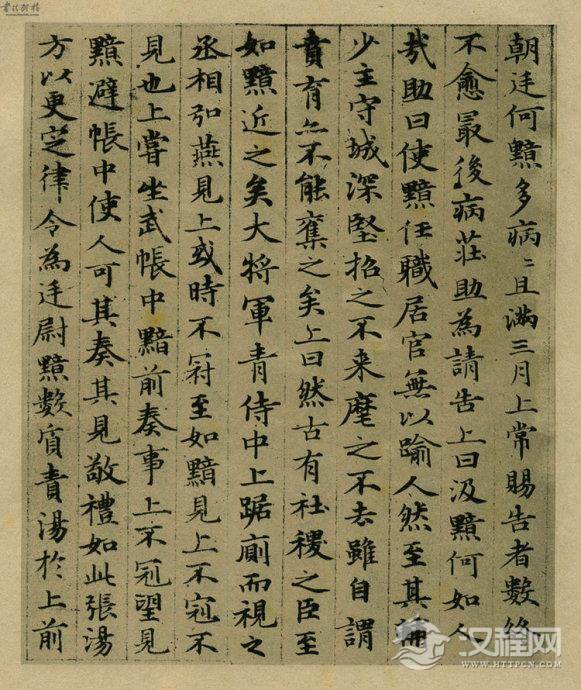 朝廷何黯多病〻且滿三月上常賜告者數終
不愈最後病莊助為請告上曰汲黯何如人
哉助曰使黯任職居官無以踰人然至其輔
少主守城深堅招之不来麾之不去雖自謂
賁育亦不能奪之矣上曰然古有社稷之臣至
如黯近之矣大將軍青侍中上踞廁而視之
丞相弘燕見上或時不冠至如黯見上不冠不
見也上嘗坐武帳中黯前奏事上不冠望見
黯避帳中使人可其奏其見敬禮如此張湯
方以更定律令為廷尉黯數質責湯於上前
汉程网
WWW.HTTPCN.COM